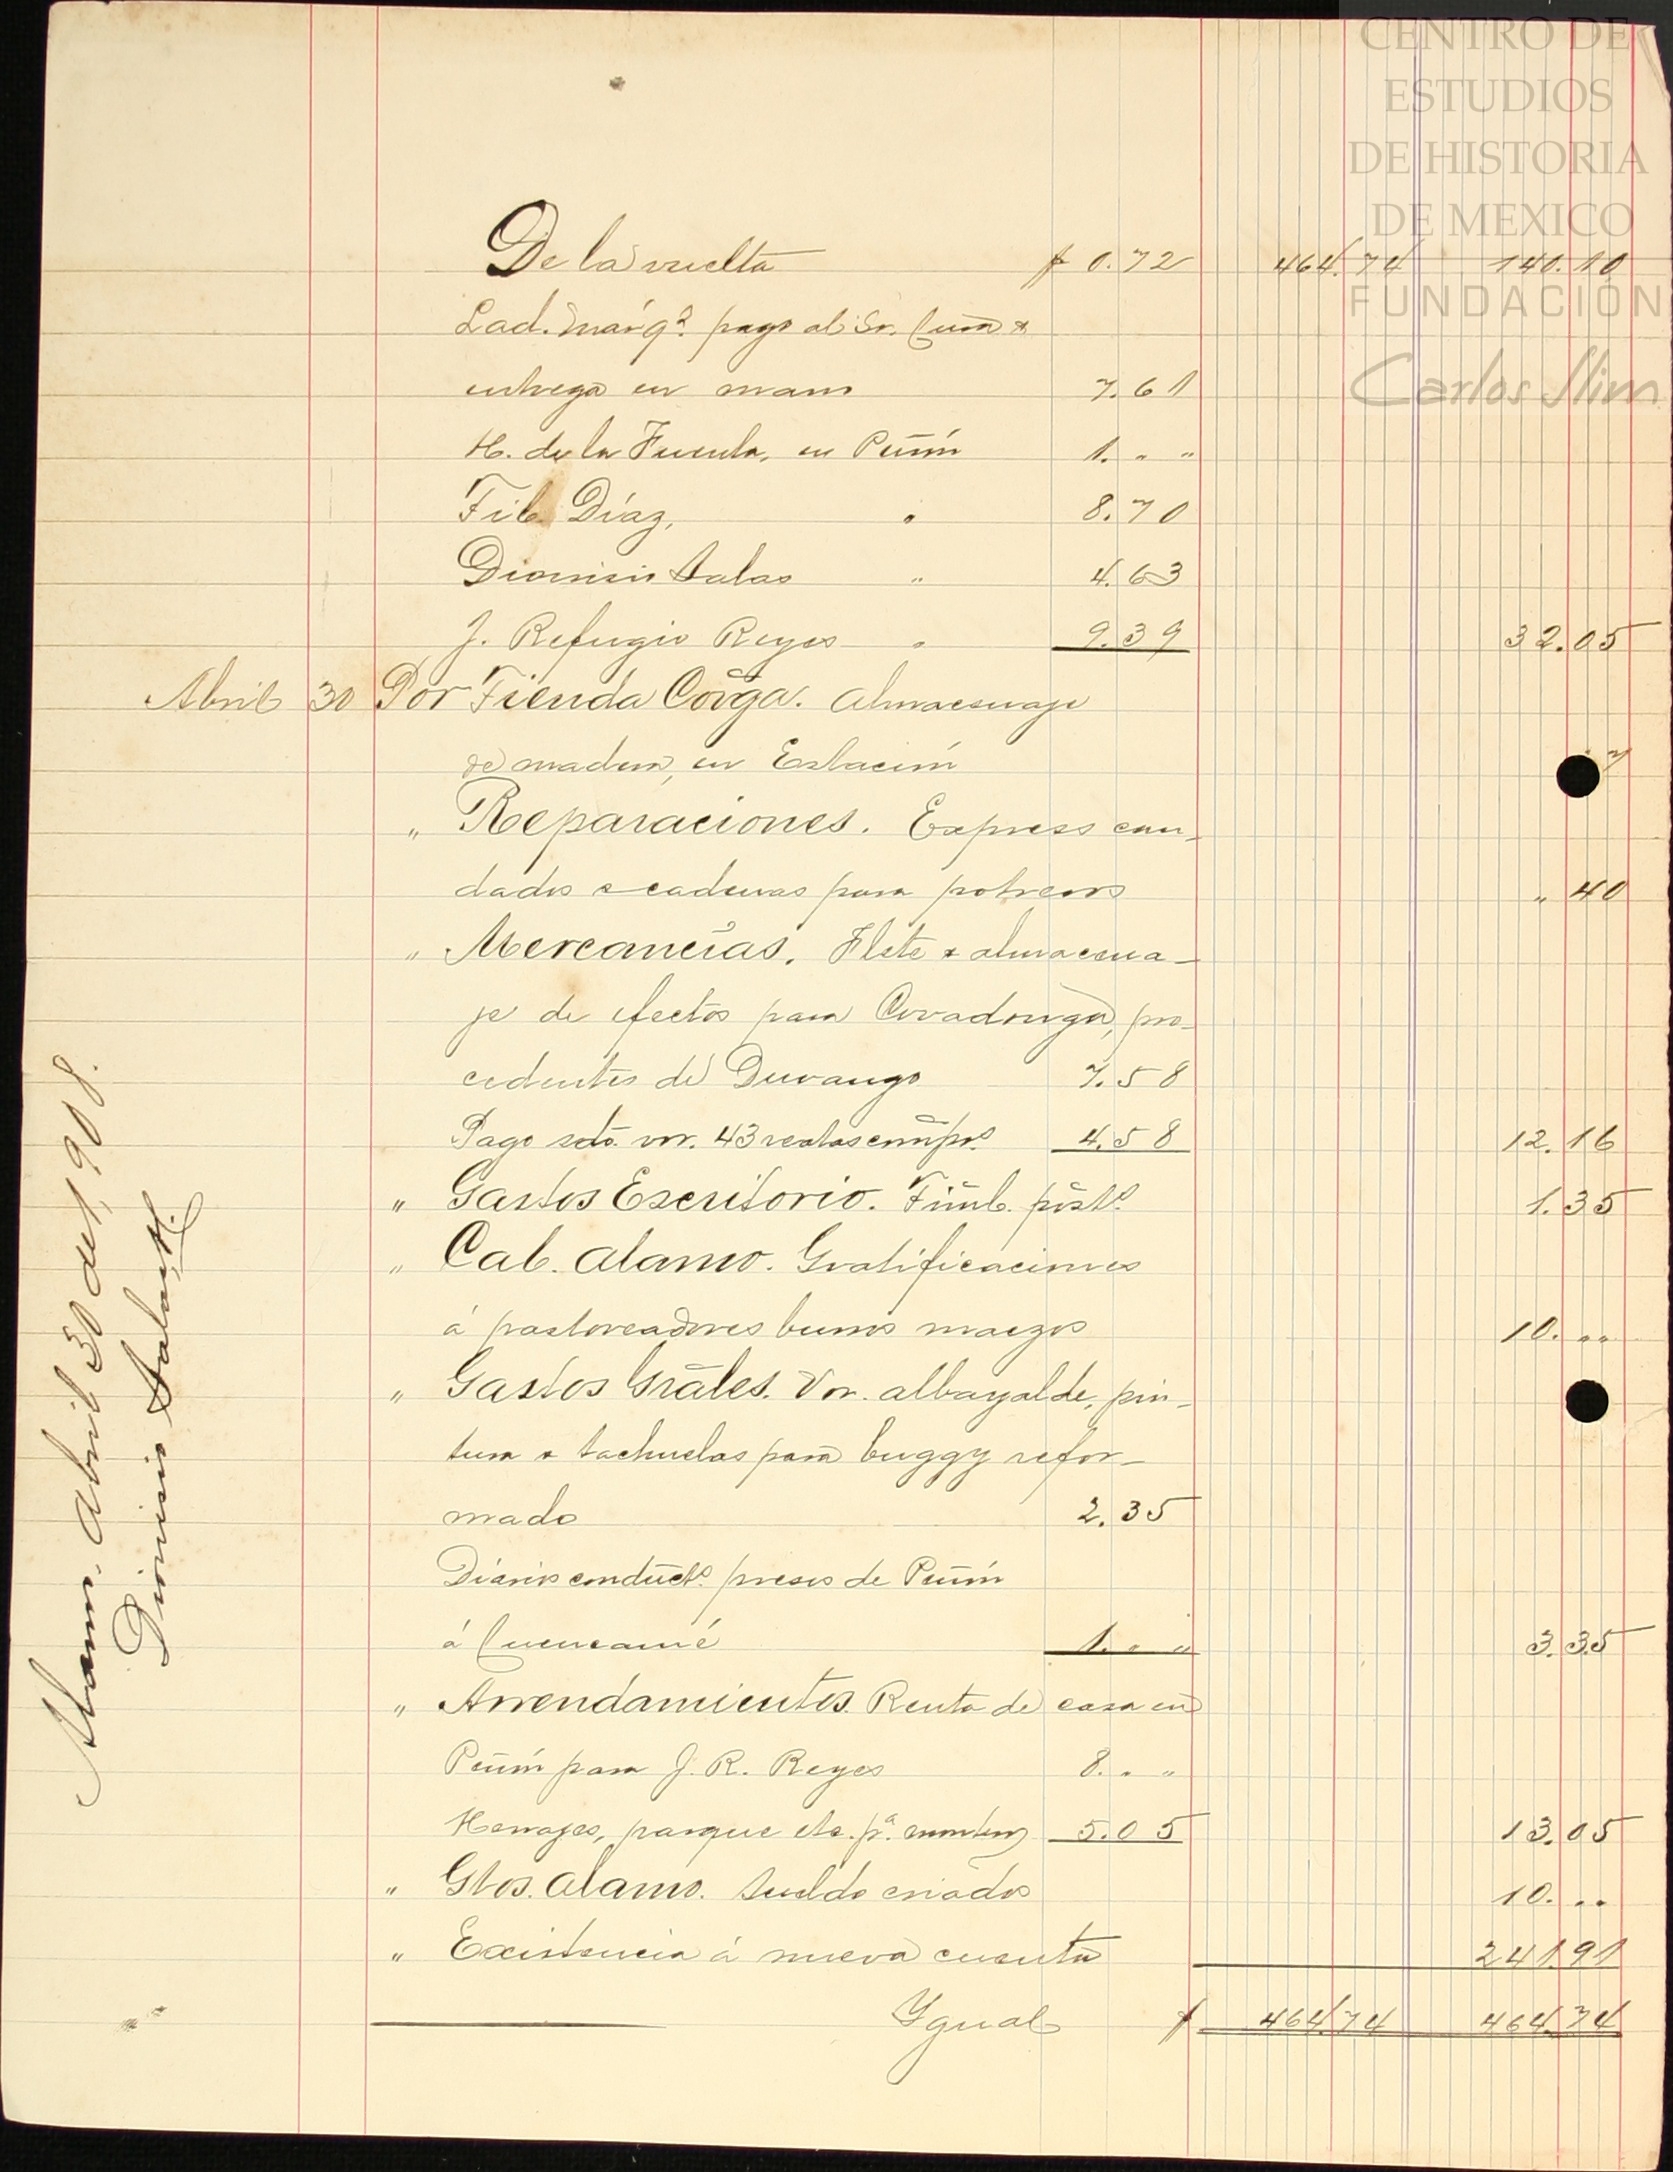 CENTRO DE
ESTUDIOS
DE HISTORIA
DE MEXICO
FUNDACIÓN
Carlos Slim
De la vuelta $ 0.72 464.74 140.10
Lad. Márqz pago al Sr. Cura &
entrega en mano 7.61
H. de la Fuente, en Peñón 1. " "
Fib. Díaz, " 8.70
Dionisio Salas " 4.63
J. Refugio Reyes " 9.39 32.05
Abril 30 Por Tienda Covga. Almacenaje
de madera, en Estación 7
" Reparaciones. Express can-
dados & cadenas para potreros " 40
" Mercancías. Flete & almacena-
je de efectos para Covadonga, pro-
cedentes de Durango 7.58
Pago vor. 43 reatas 4.58 12.16
" Gastos Escritorio. Timb. posts 1.35
" Cab. Alamo. Gratificaciones
á pastoreadores burros 10. " "
" Gastos Grales. Vor. albayalde, pin-
tura & tachuelas para buggy refor-
mado 2.35
Diarios conducts presos de Peñón
á Cuencamé 1. " " 3.35
" Arrendamientos. Renta de casa en
Peñón para J. R. Reyes 8. " "
parque etc. pa. 5.05 13.05
" Gtos. Alamo. Sueldo criados 10. " "
" Existencia á nueva cuenta 241.91
Ygual $ 464.74 464.74
Alamo. Abril 30 de 1,908.
Dionisio Salas H.